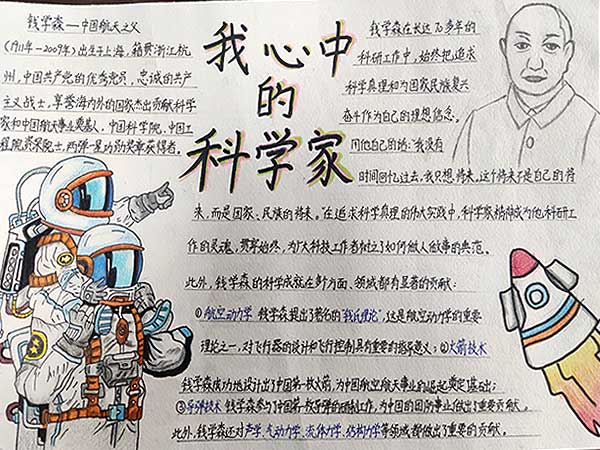 我心中
的
科学家
钱学森——中国航天之父
(1911年-2009年)出生于上海,籍贯浙江杭
州,中国共产党的优秀党员,忠诚的共产
主义战士,享誉海内外的国家杰出贡献科学
家和中国航天事业奠基人,中国科学院、中国工
程院资深院士,两弹一星功勋奖章获得者。
钱学森在长达70多年的
科研工作中,始终把追求
科学真理和为国家民族复兴
奋斗作为自己的理想信念。
用他自己的话:"我没有
时间回忆过去,我只想将来,这个将来不是自己的将
来,而是国家、民族的将来。"在追求科学真理的伟大实践中,科学家精神成为他科研工
作的灵魂,贯穿始终,为广大科技工作者树立了如何做人做事的典范。
此外,钱学森的科学成就在多方面、领域都有显著的贡献:
①航空动力学 钱学森提出了著名的"钱氏理论",这是航空动力学的重要
理论之一,对飞行器的设计和飞行控制具有重要的指导意义;②火箭技术
钱学森成功地设计出了中国第一枚火箭,为中国航空航天事业的崛起奠定了基石;
③导弹技术 钱学森参与了中国第一枚导弹的研制工作,为中国的国防事业做出了重要贡献。
此外,钱学森还对声学、气动力学、流体力学、结构力学等领域都做出了重要的贡献。